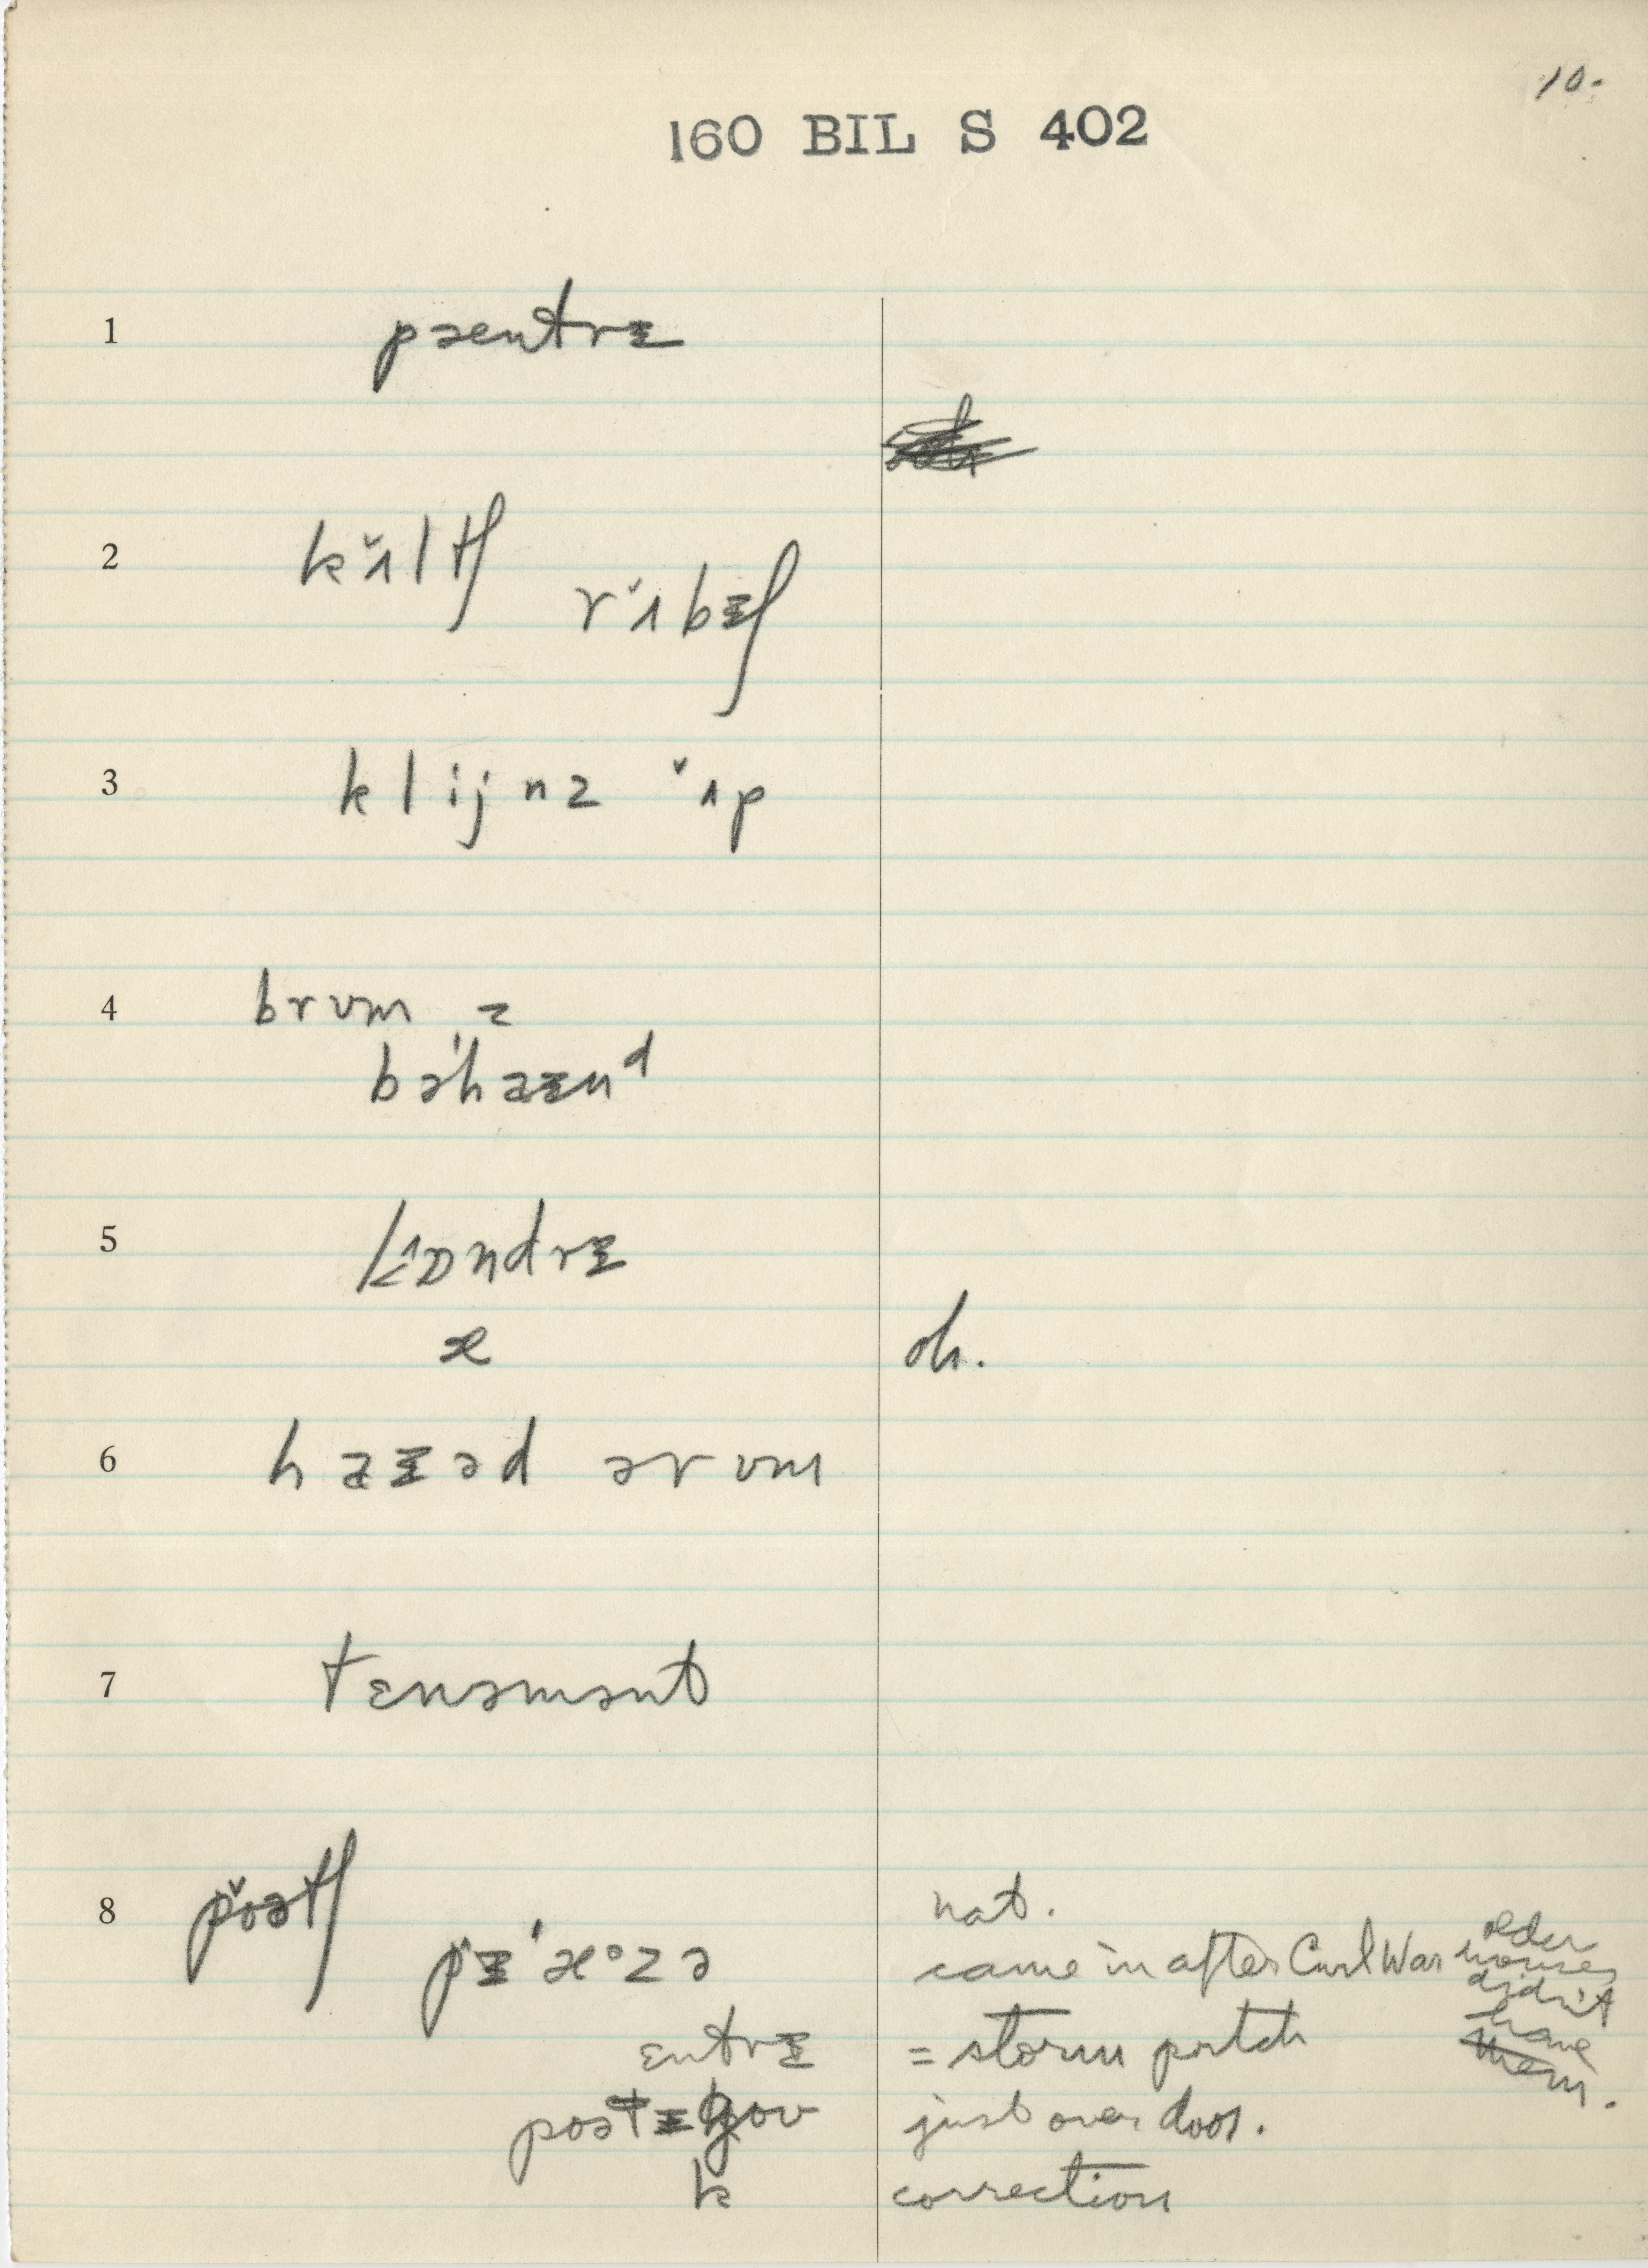 10.
160 BIL S 402
1 pæntrɪ
2 kʌ̌ltʃ
rʌ̌bɪʃ
3 klijnz ʌ̌p
4 brʊm =
bəˈhaɪnd
5 lɒndrɪ
æ oh.
6 haɪəd ərʊm
7 tɛnəmənt
8 pǒətʃ nat.
pɪˈæᶻzə came in after Civil War older houses didn't have them.
ɛntrɪ = storm portch
poətɪ gov just over door.
k correction